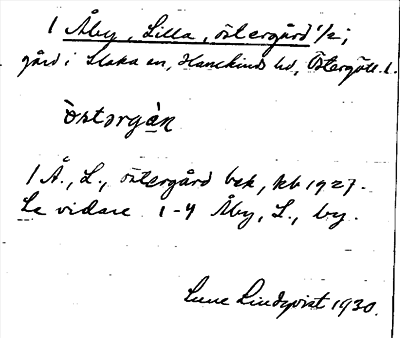 1 Åby, Lilla, östergård 1/2;
gård i Slaka sn, Hanekinds hd, Östergötl. l.
òstərgàn
1 Å., L., östergård bek, kb 1927.
Se vidare 1-4 Åby, L., by.
Sune Lindqvist 1930.